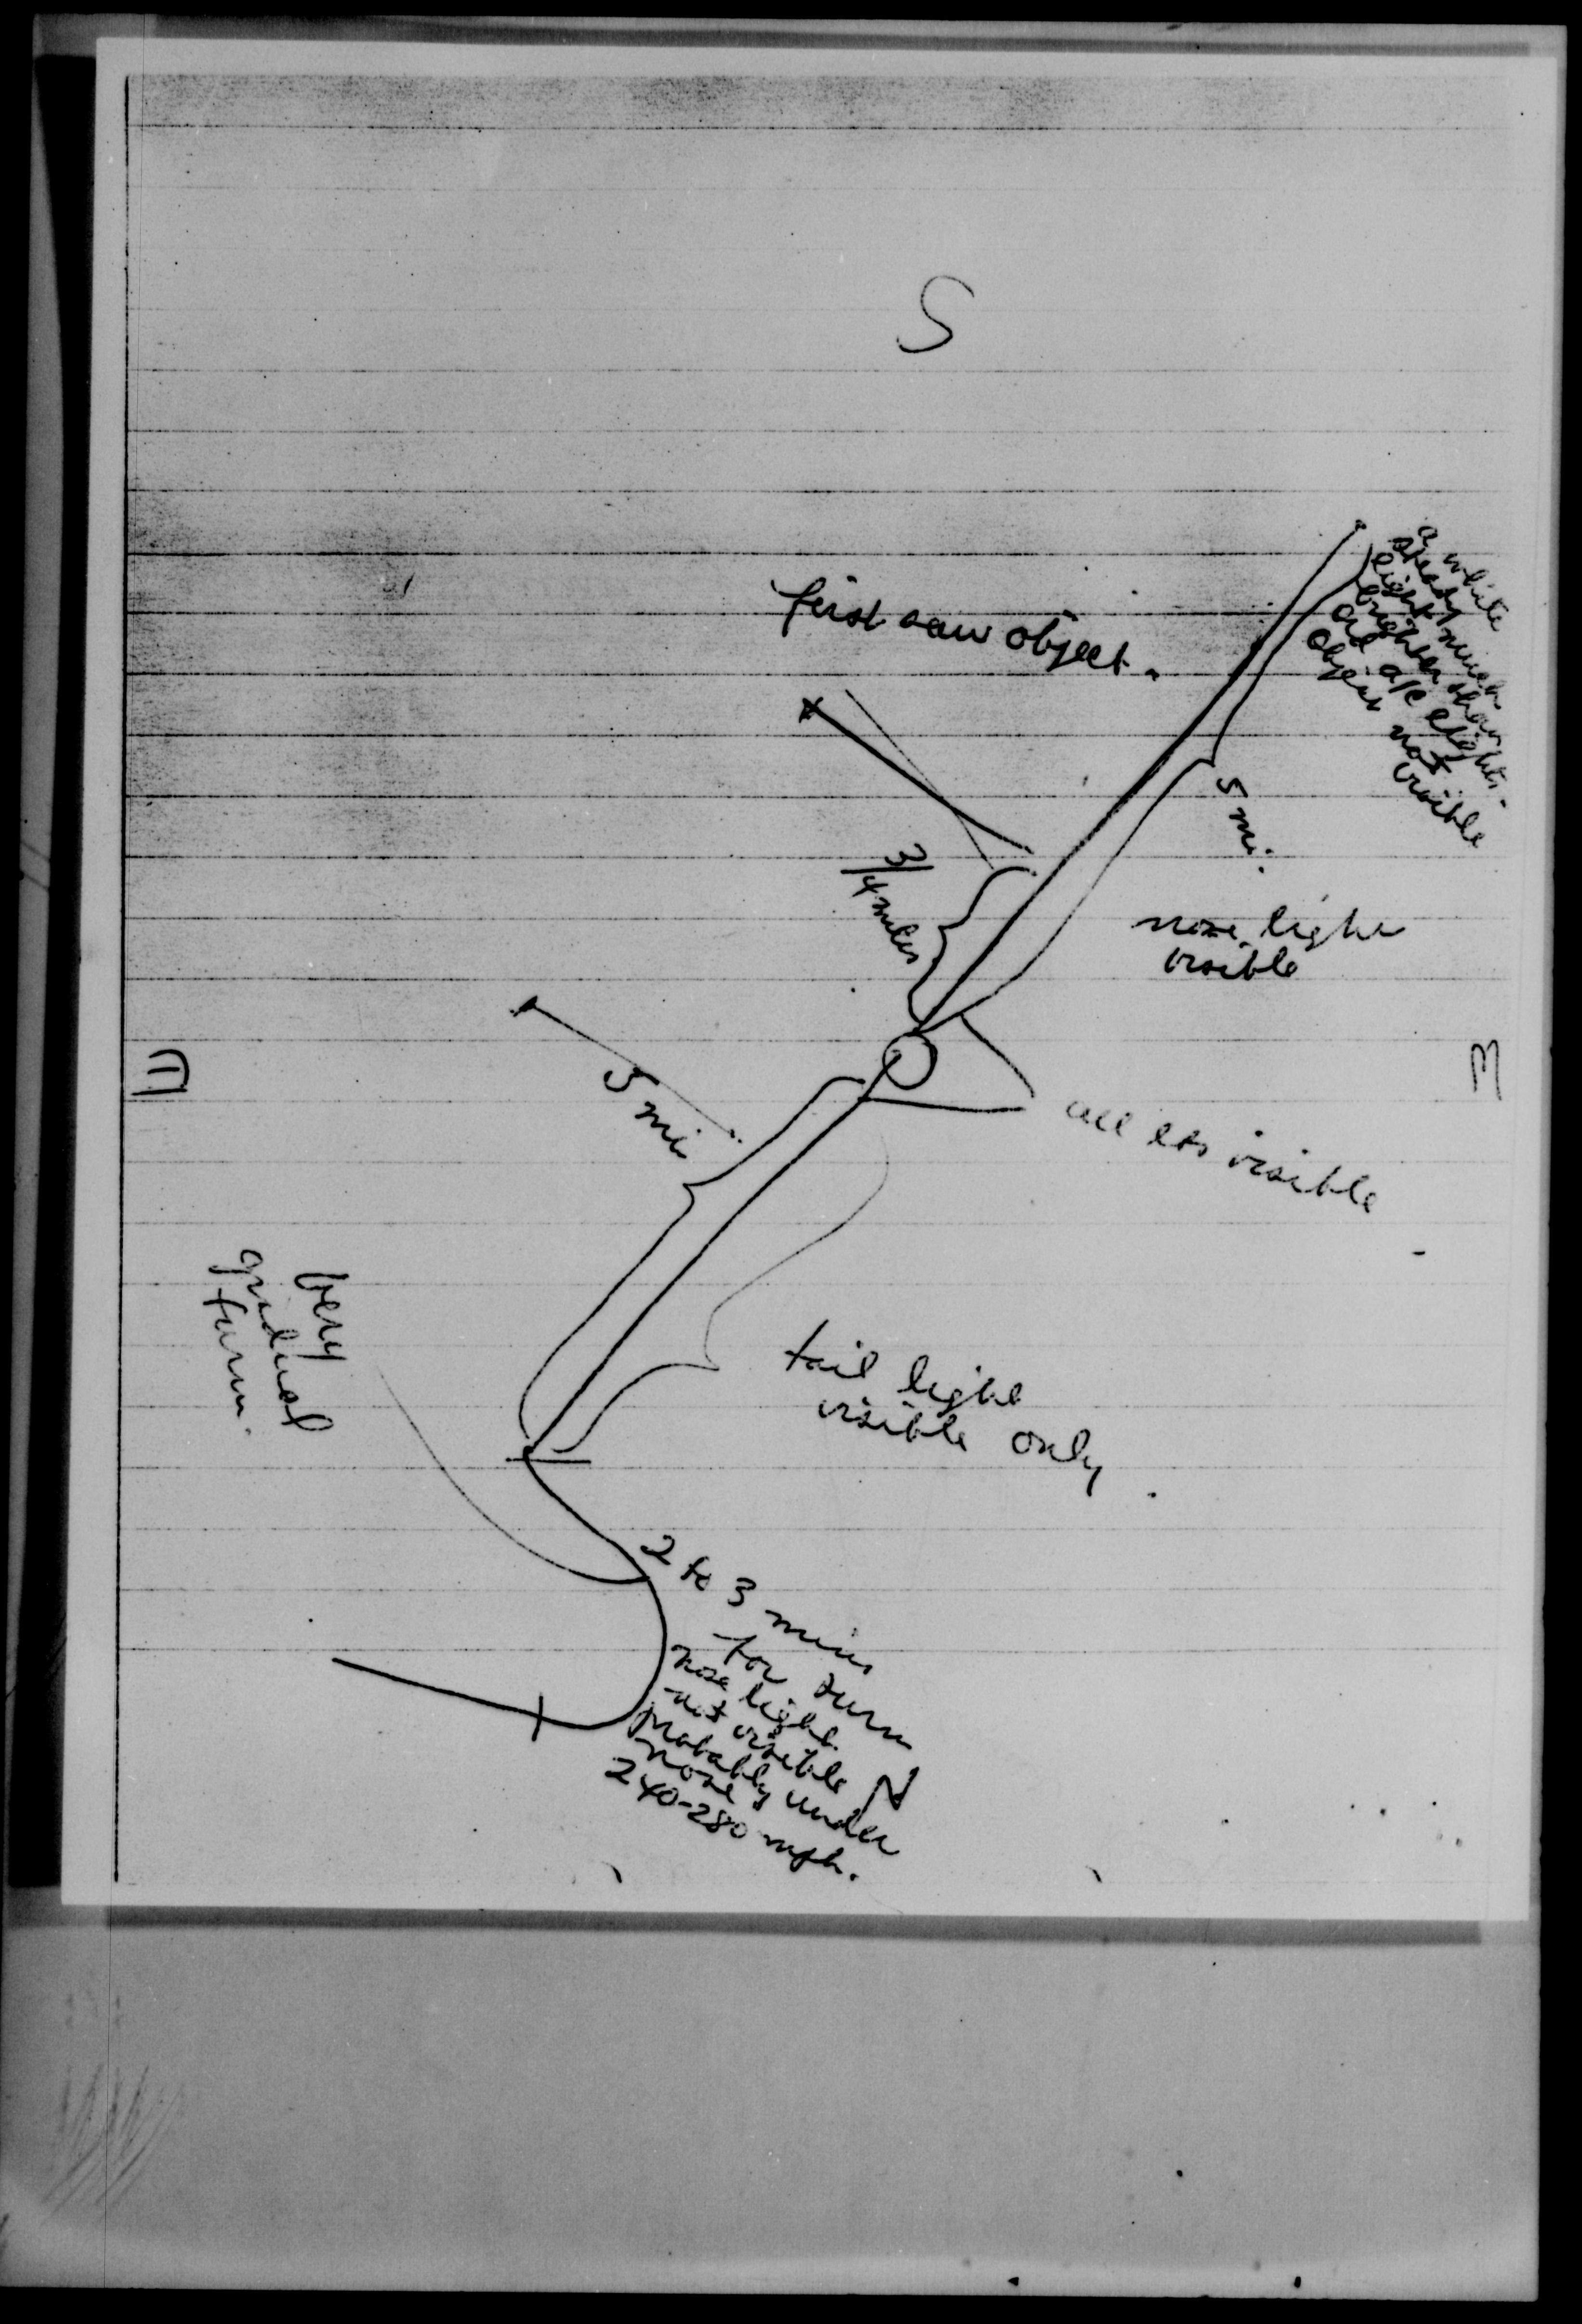 S
a white
steady
light much
brighter than
old a/c lights.
object not
visible
first saw object.
5 mi.
3/4 miles
nose light
visible
E
W
5 mi
all lts visible
very
gradual
turn.
tail light
visible only.
2 to 3 mins
for turn
nose light
not visible
probably under
nose
240-280 mph.
N